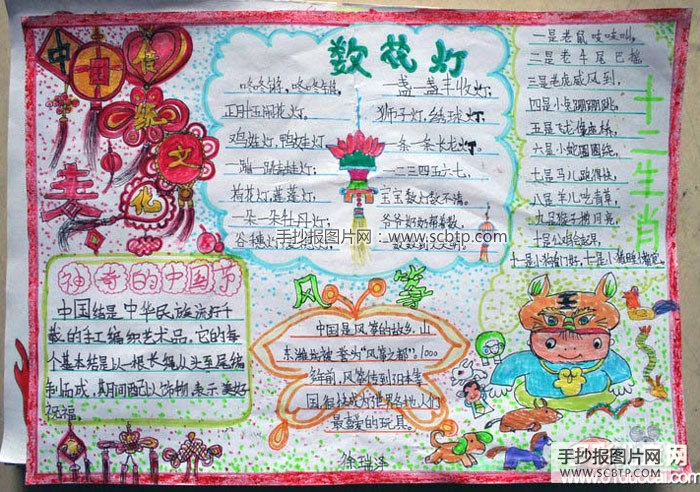 中国传统文化
数花灯
咚咚锵,咚咚锵,
正月十五闹花灯。
鸡娃灯,鸭娃灯,
一蹦一跳青蛙灯,
荷花灯,莲莲灯,
一朵一朵牡丹灯;
一盏一盏丰收灯;
狮子灯,绣球灯,
一条一条长龙灯。
一二三四五六七,
宝宝数灯数不清。
爷爷奶奶帮着数,
一是老鼠吱吱叫,
二是老牛尾巴摇,
三是老虎威风到,
四是小兔蹦蹦跳,
五是飞龙
六是小蛇圈圈绕,
七是马儿跑得快,
八是羊儿吃青草,
九是猴子捞月亮,
十是公鸡
十一是小狗看门好,
十二生肖
神奇的中国节
中国结是中华民族流行千
载的手工编织艺术品,它的每
个基本结是以一根长绳从头至尾编
制而成,期间配以饰物,表示美好
祝福。
风筝
中国是风筝的故乡,山
东潍坊被誉为“风筝之都”,1000
年前,风筝传到日本等
国,很快成为世界各地人们
最喜爱的玩具。
徐瑞泽
手抄报图片网:www.scbtp.com
手抄报图片网
WWW.SCBTP.COM